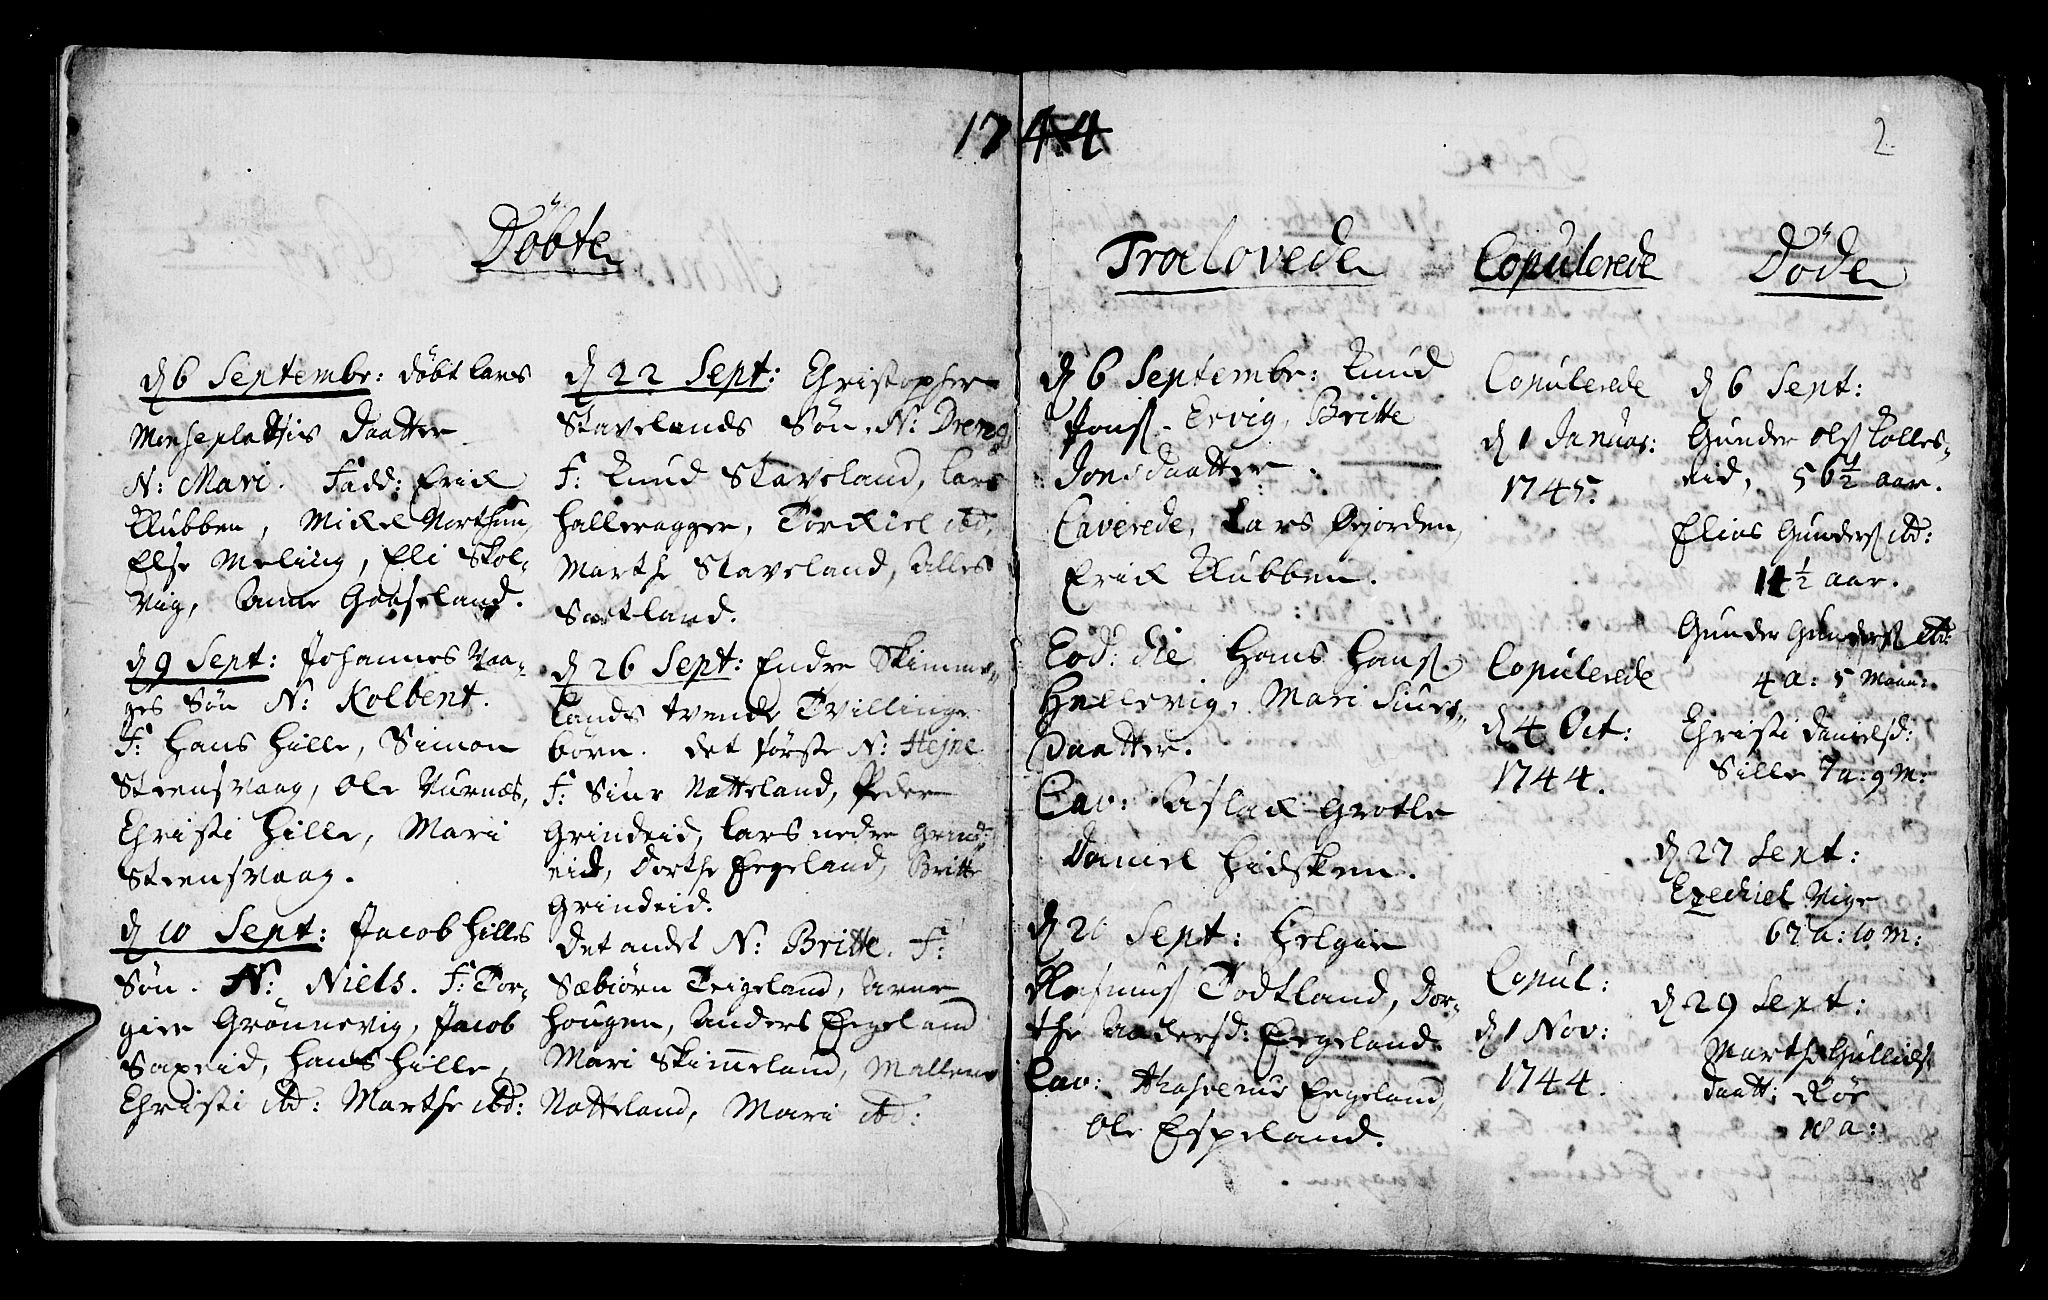 1744
2
Döbte
d 6 Septembr: döbt Lars
Monseplattsis Daatter
N: Mari. Fadd: Erick
Klubben, Mickel Northun,
Else Meling, Eli Skol-
vig, Anne Gaaseland.
d 9 Sept: Johannes Vaa-
ges Sön N: Kolbent.
F: Hans Hille, Simon
Steensvaag, Ole Turnæs,
Christi Hille, Mari
Steensvaag.
d 10 Sept: Jacob Hilles
Sön. N: Niels. F: Tor-
gier Grönnevig, Jacob
Saxeid, Hans Hille,
Christi ibd: Marthe ibd:
d 22 Sept: Christopher
Stavelands Sön. N: Dreng
F: Knud Staveland, Lars
Halleragger, Torckiel ibd,
Marthe Staveland, Alles
Sætland.
d 26 Sept: Endre Skimme-
lands tvende Tvillinge
börn. det förste N: Hejne
F: Siur Natteland, Peder
Grindeid, Lars nedre Grind-
eid, Dorthe Eegeland, Britte
Grindeid.
Det andet N: Britte. F:
Sæbiörn Teigeland, Arne
Hougen, Anders Eegeland
Mari Skimmeland, Mallene
Natteland, Mari ibd:
Troelovede
d 6 Septembr: Knud
Jons. Ervig, Britte
Jonsdaatter.
Caverede, Lars Øejorden,
Erick Klubben.
Eod: die Hans Hans.
Hellevig, Mari Siurs-
daatter.
Cav: Aslak Grotle
Daniel Hidsken.
d 20 Sept: Helgie
Rasmus Todtland, Dor-
the Andersd: Eegeland
Cav: Asserus Eegeland,
Ole Espeland.
Copulerede
Copulerede
d 1 Januar:
1745.
Copulerede
d 4 Oct:
1744.
Copul:
d 1 Nov:
1744.
Döde
d 6 Sept:
Gunder Ols Kolles-
eid, 56 1/2 aar.
Elias Gunders ibd:
14 1/2 aar.
Gunder Gunders ibd:
4 a: 5 Maan:
Christi Danielsd:
Sille 7 a: 9 M:
d 27 Sept:
Ezechiel Vige
67 a: 10 M:
d 29 Sept:
Marthe Gulliks
daatt: Röe
18 a: